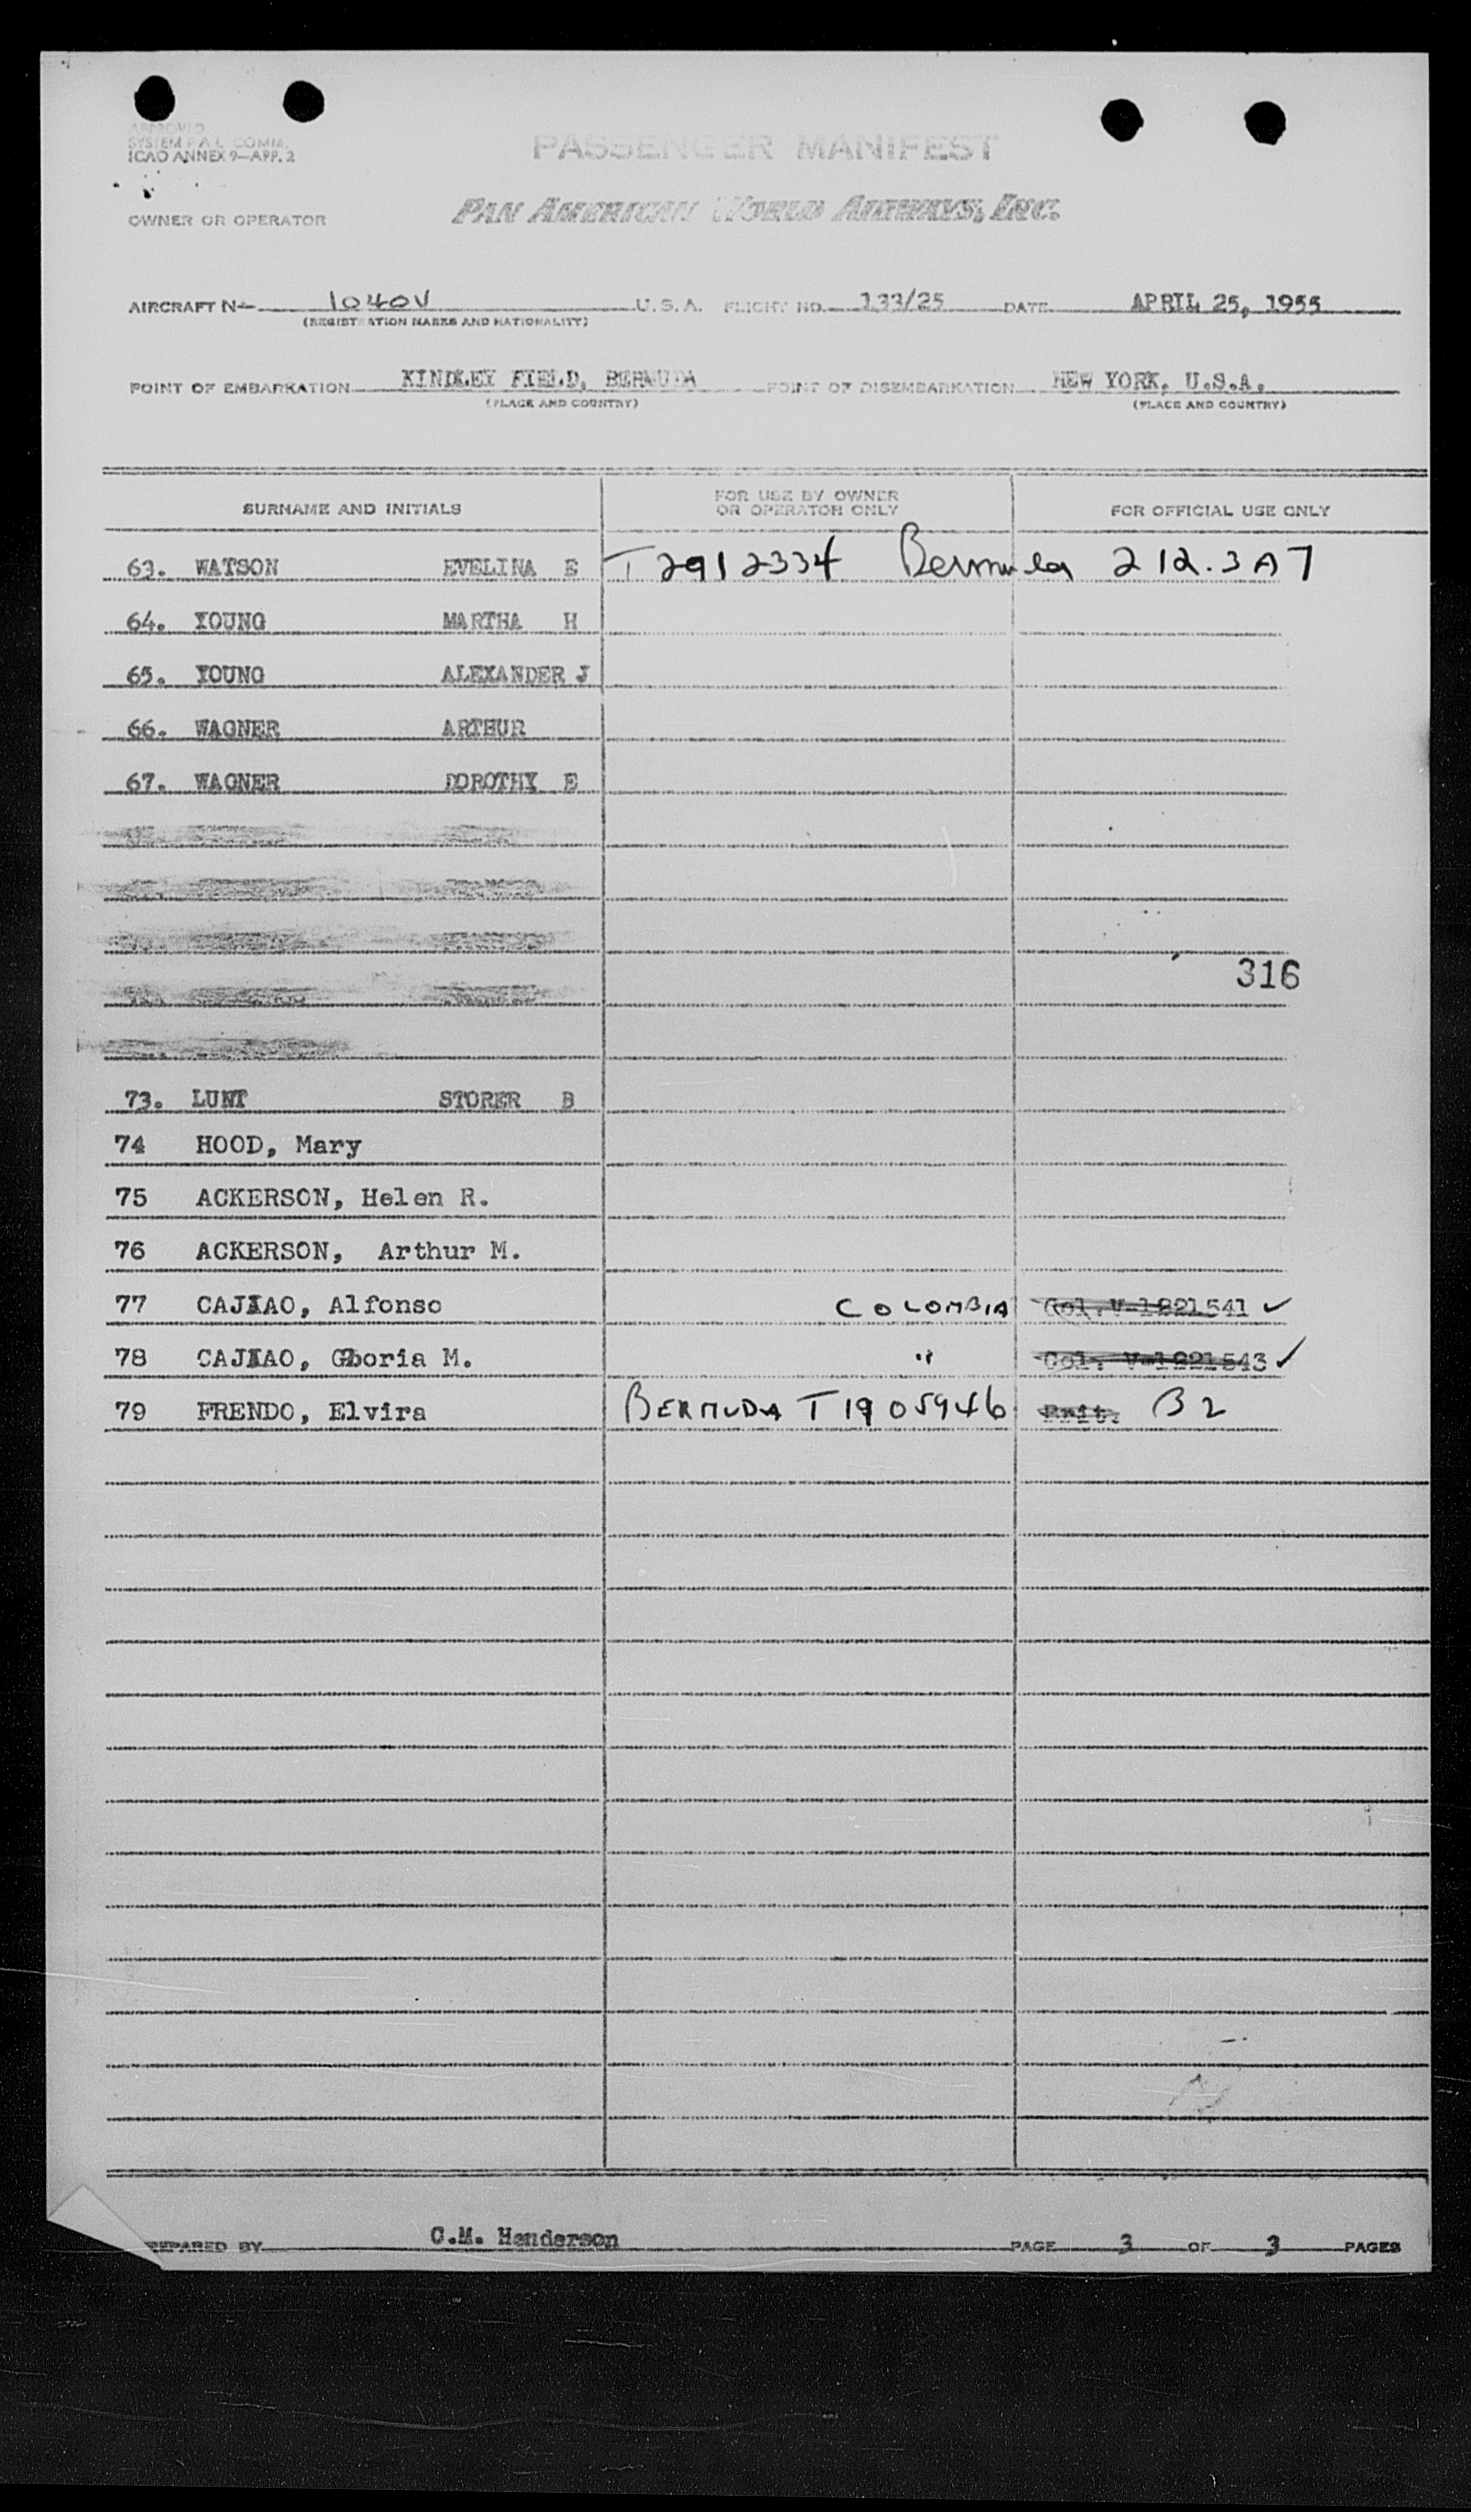 APPROVED
SYSTEM P.A.L. COMM.
ICAO ANNEX 9—APP. 2
PASSENGER MANIFEST
OWNER OR OPERATOR PAN AMERICAN WORLD AIRWAYS, INC.
AIRCRAFT N- 1040V U.S.A. FLIGHT NO. 133/25 DATE APRIL 25, 1955
(REGISTRATION MARKS AND NATIONALITY)
POINT OF EMBARKATION KINDLEY FIELD, BERMUDA POINT OF DISEMBARKATION NEW YORK, U.S.A.
(PLACE AND COUNTRY) (PLACE AND COUNTRY)
SURNAME AND INITIALS FOR USE BY OWNER OR OPERATOR ONLY FOR OFFICIAL USE ONLY
63. WATSON EVELINA E T2912334 Bermuda 212.3A7
64. YOUNG MARTHA H
65. YOUNG ALEXANDER J
66. WAGNER ARTHUR
67. WAGNER DOROTHY E
316
73. LUNT STORER B
74 HOOD, Mary
75 ACKERSON, Helen R.
76 ACKERSON, Arthur M.
77 CAJIAO, Alfonso COLOMBIA Col. V-1221541 ✓
78 CAJIAO, Gloria M. " Col. V-1221543 ✓
79 FRENDO, Elvira BERMUDA T1905946 Brit. B2
PREPARED BY C.M. Henderson PAGE 3 OF 3 PAGES